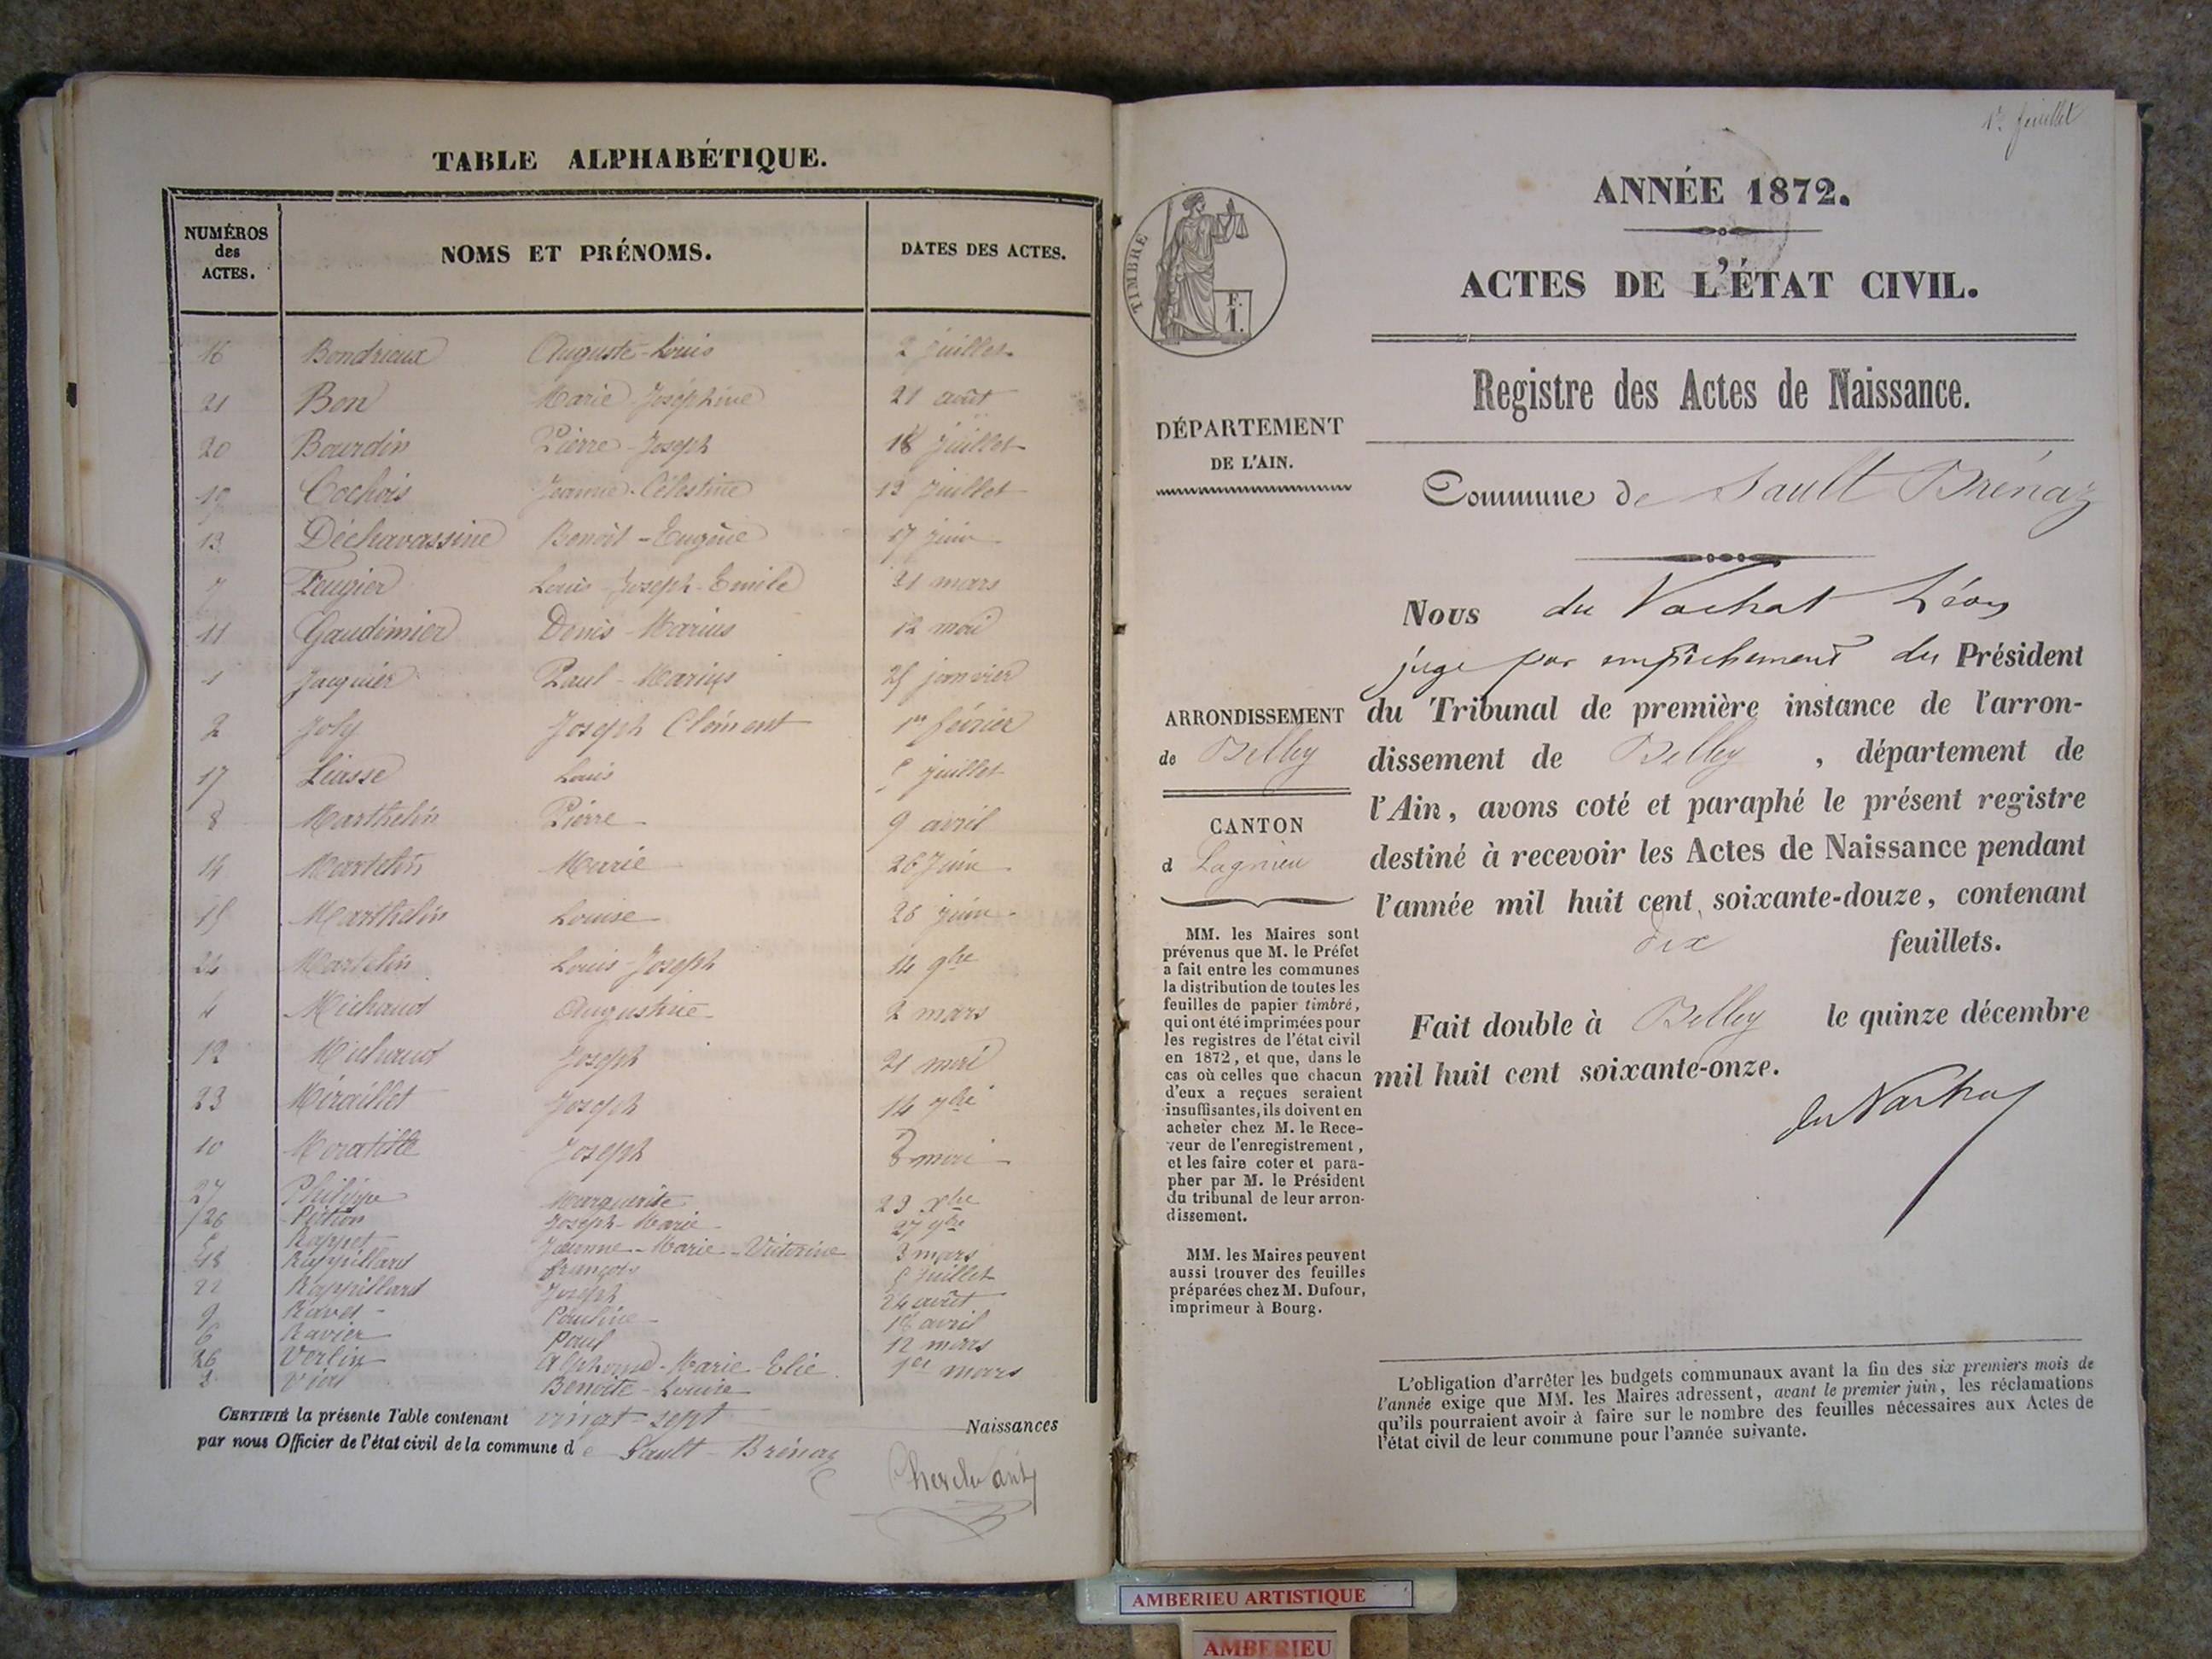 TABLE ALPHABÉTIQUE.
NUMÉROS des ACTES. NOMS ET PRÉNOMS. DATES DES ACTES.
16 Bondrieux Auguste-Louis 2 juillet
21 Bon Marie Joséphine 21 août
20 Bourdin Pierre-Joseph 18 juillet
19 Cochois Jeanne-Célestine 13 juillet
13 Déchavassine Benoît-Eugène 17 juin
7 Feugier Louis-Joseph-Emile 21 mars
11 Gaudimier Denis-Marius 12 mai
1 Jacquier Paul-Marius 25 janvier
2 Joly Joseph Clément 1er février
17 Liasse Louis 5 juillet
8 Marthelin Pierre 9 avril
14 Martelin Marie 26 Juin
15 Marthelin Louise 26 juin
24 Martelin Louis-Joseph 14 9bre
4 Michaud Augustine 2 mars
12 Michaud Joseph 21 mai
23 Miraillet Joseph 14 7bre
10 Joseph 8 mai
27 Philippe Marguerite 23 Xbre
Joseph-Marie 27 9bre
Rappet Jeanne-Marie-Victorine 3 mars
18 Rappillard François 5 juillet
22 Rappillard Joseph 24 août
9 Ravet Pauline 18 avril
6 Ravier Paul 12 mars
26 Verlin Alphonse-Marie-Elie
3 Benoite-Louise 1er mars
CERTIFIÉ la présente Table contenant vingt-sept Naissances
par nous Officier de l'état civil de la commune de Sault-Brénaz
1er feuillet
ANNÉE 1872.
ACTES DE L'ÉTAT CIVIL.
TIMBRE
F.
1.
Registre des Actes de Naissance.
DÉPARTEMENT
DE L'AIN.
Commune de Sault Brénaz
Nous du Vachat Léon
juge par empêchement du Président
du Tribunal de première instance de l'arron-
dissement de Belley, département de
l'Ain, avons coté et paraphé le présent registre
destiné à recevoir les Actes de Naissance pendant
l'année mil huit cent soixante-douze, contenant
dix feuillets.
Fait double à Belley le quinze décembre
mil huit cent soixante-onze.
du Vachat
ARRONDISSEMENT
de Belley
CANTON
d Lagnieu
MM. les Maires sont
prévenus que M. le Préfet
a fait entre les communes
la distribution de toutes les
feuilles de papier timbré,
qui ont été imprimées pour
les registres de l'état civil
en 1872, et que, dans le
cas où celles que chacun
d'eux a reçues seraient
insuffisantes, ils doivent en
acheter chez M. le Rece-
veur de l'enregistrement,
et les faire coter et para-
pher par M. le Président
du tribunal de leur arron-
dissement.
MM. les Maires peuvent
aussi trouver des feuilles
préparées chez M. Dufour,
imprimeur à Bourg.
L'obligation d'arrêter les budgets communaux avant la fin des six premiers mois de
l'année exige que MM. les Maires adressent, avant le premier juin, les réclamations
qu'ils pourraient avoir à faire sur le nombre des feuilles nécessaires aux Actes de
l'état civil de leur commune pour l'année suivante.
AMBERIEU ARTISTIQUE
AMBERIEU